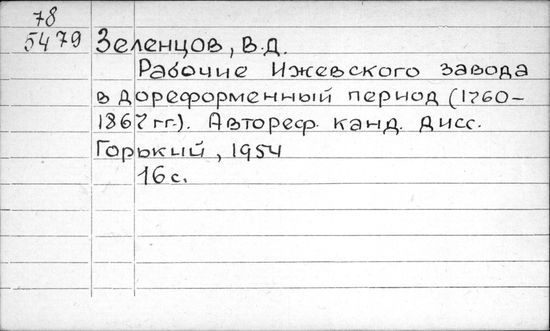 78
5479 Зеленцов, В.Д.
Рабочие Ижевского завода
в дореформенный период (1760-
1867 гг.). Автореф. канд. дисс.
Горький, 1954
16 с.